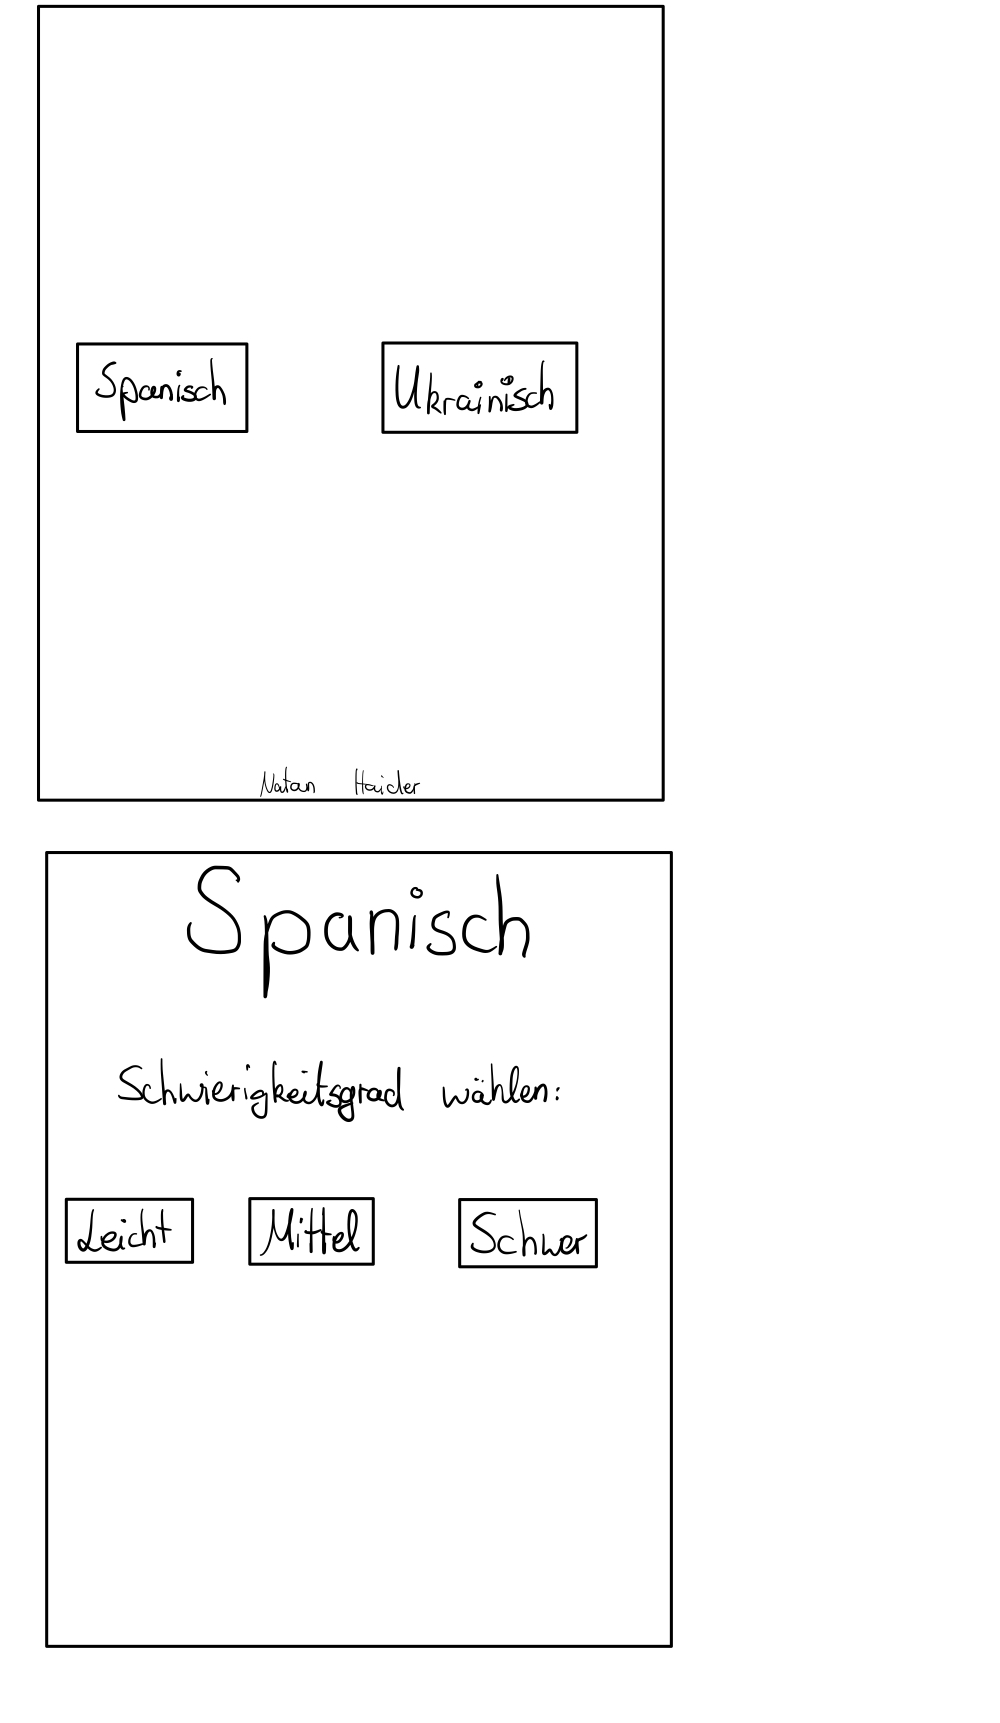 Spanisch Ukrainisch
Natan Haider
Spanisch
Schwierigkeitsgrad wählen:
Leicht Mittel Schwer